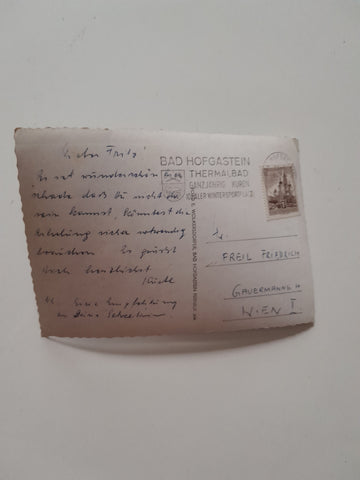 Lieber Fritz!
Es ist wunderschön
schade daß du nicht
sein kannst. Könntest die
Erholung sicher notwendig
brauchen. Es grüßt
Dich herzlichst
Eine Empfehlung
an Deine
BAD HOFGASTEIN
THERMALBAD
GANZJÄHRIG KUREN
IDEALER WINTERSPORTPLATZ
FREIL FRIEDRICH
GAUERMANNG
WIEN I.